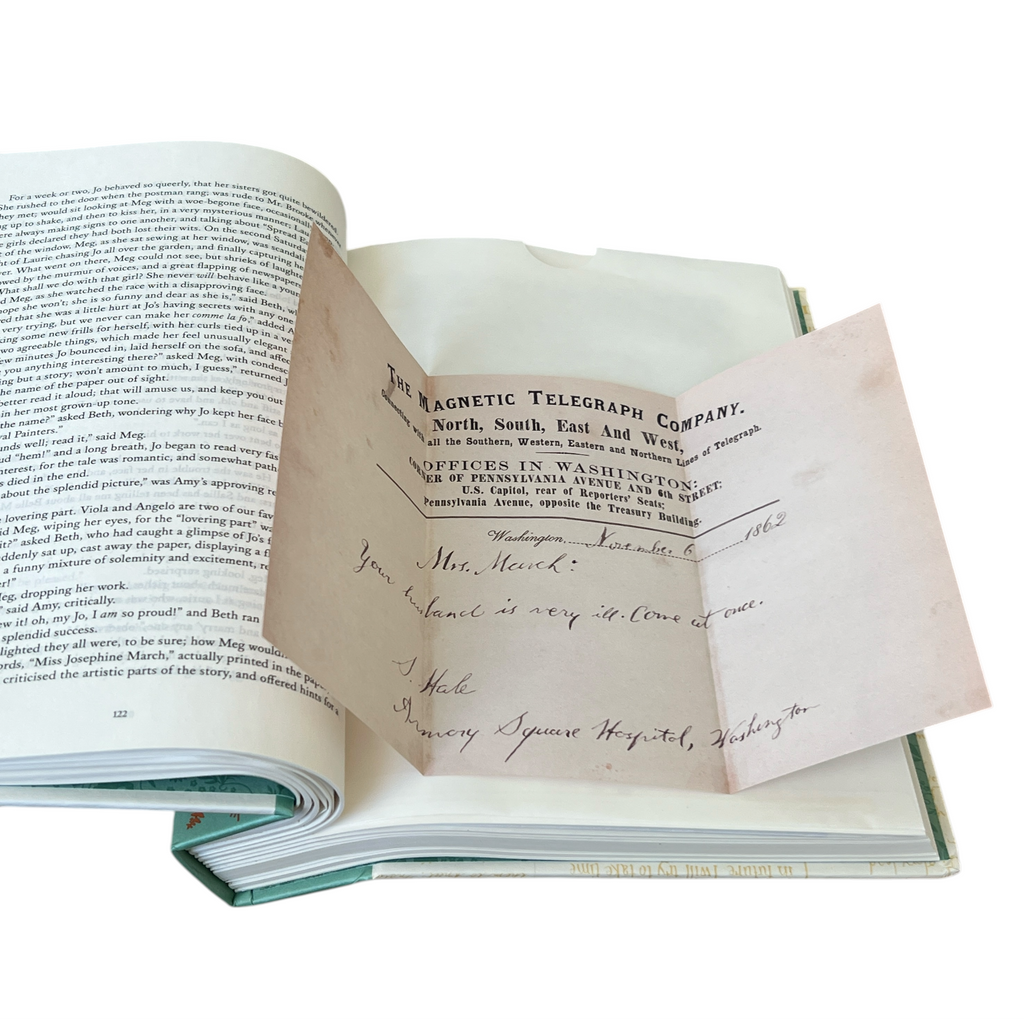 For a week or two, Jo behaved so queerly, that her sisters got quite bewildered.
She rushed to the door when the postman rang; was rude to Mr. Brooke whenever
they met; would sit looking at Meg with a woe-begone face, occasionally
ng up to shake, and then to kiss her, in a very mysterious manner; Lau
ere always making signs to one another, and talking about "Spread E
e girls declared they had both lost their wits. On the second Saturda
t of the window, Meg, as she sat sewing at her window, was scandali
ht of Laurie chasing Jo all over the garden, and finally capturing he
er. What went on there, Meg could not see, but shrieks of laughte
owed by the murmur of voices, and a great flapping of newspapers
What shall we do with that girl? She never will behave like a youn
d Meg, as she watched the race with a disapproving face.
ope she won't; she is so funny and dear as she is," said Beth, wh
ed that she was a little hurt at Jo's having secrets with any one
very trying, but we never can make her comme la fo," added A
king some new frills for herself, with her curls tied up in a ve
two agreeable things, which made her feel unusually elegant
ew minutes Jo bounced in, laid herself on the sofa, and affec
e you anything interesting there?" asked Meg, with condesc
ing but a story; won't amount to much, I guess," returned J
he name of the paper out of sight.
better read it aloud; that will amuse us, and keep you out
in her most grown-up tone.
the name?" asked Beth, wondering why Jo kept her face b
val Painters."
unds well; read it," said Meg.
ud "hem!" and a long breath, Jo began to read very fas
nterest, for the tale was romantic, and somewhat path
s died in the end.
about the splendid picture," was Amy's approving re
lovering part. Viola and Angelo are two of our fav
id Meg, wiping her eyes, for the "lovering part" wa
it?" asked Beth, who had caught a glimpse of Jo's f
uddenly sat up, cast away the paper, displaying a fl
a funny mixture of solemnity and excitement, re
er!"
Meg, dropping her work.
" said Amy, critically.
ew it! oh, my Jo, I am so proud!" and Beth ran
splendid success.
lighted they all were, to be sure; how Meg would
ords, "Miss Josephine March," actually printed in the paper
criticised the artistic parts of the story, and offered hints for a
122
The Magnetic Telegraph Company.
North, South, East And West,
Connecting with all the Southern, Western, Eastern and Northern Lines of Telegraph.
OFFICES IN WASHINGTON:
CORNER OF PENNSYLVANIA AVENUE AND 6th STREET;
U.S. Capitol, rear of Reporters' Seats;
Pennsylvania Avenue, opposite the Treasury Building.
Washington, November 6 1862
Mrs. March:
Your husband is very ill. Come at once.
S. Hale
Armory Square Hospital, Washington
in future I will try to take time